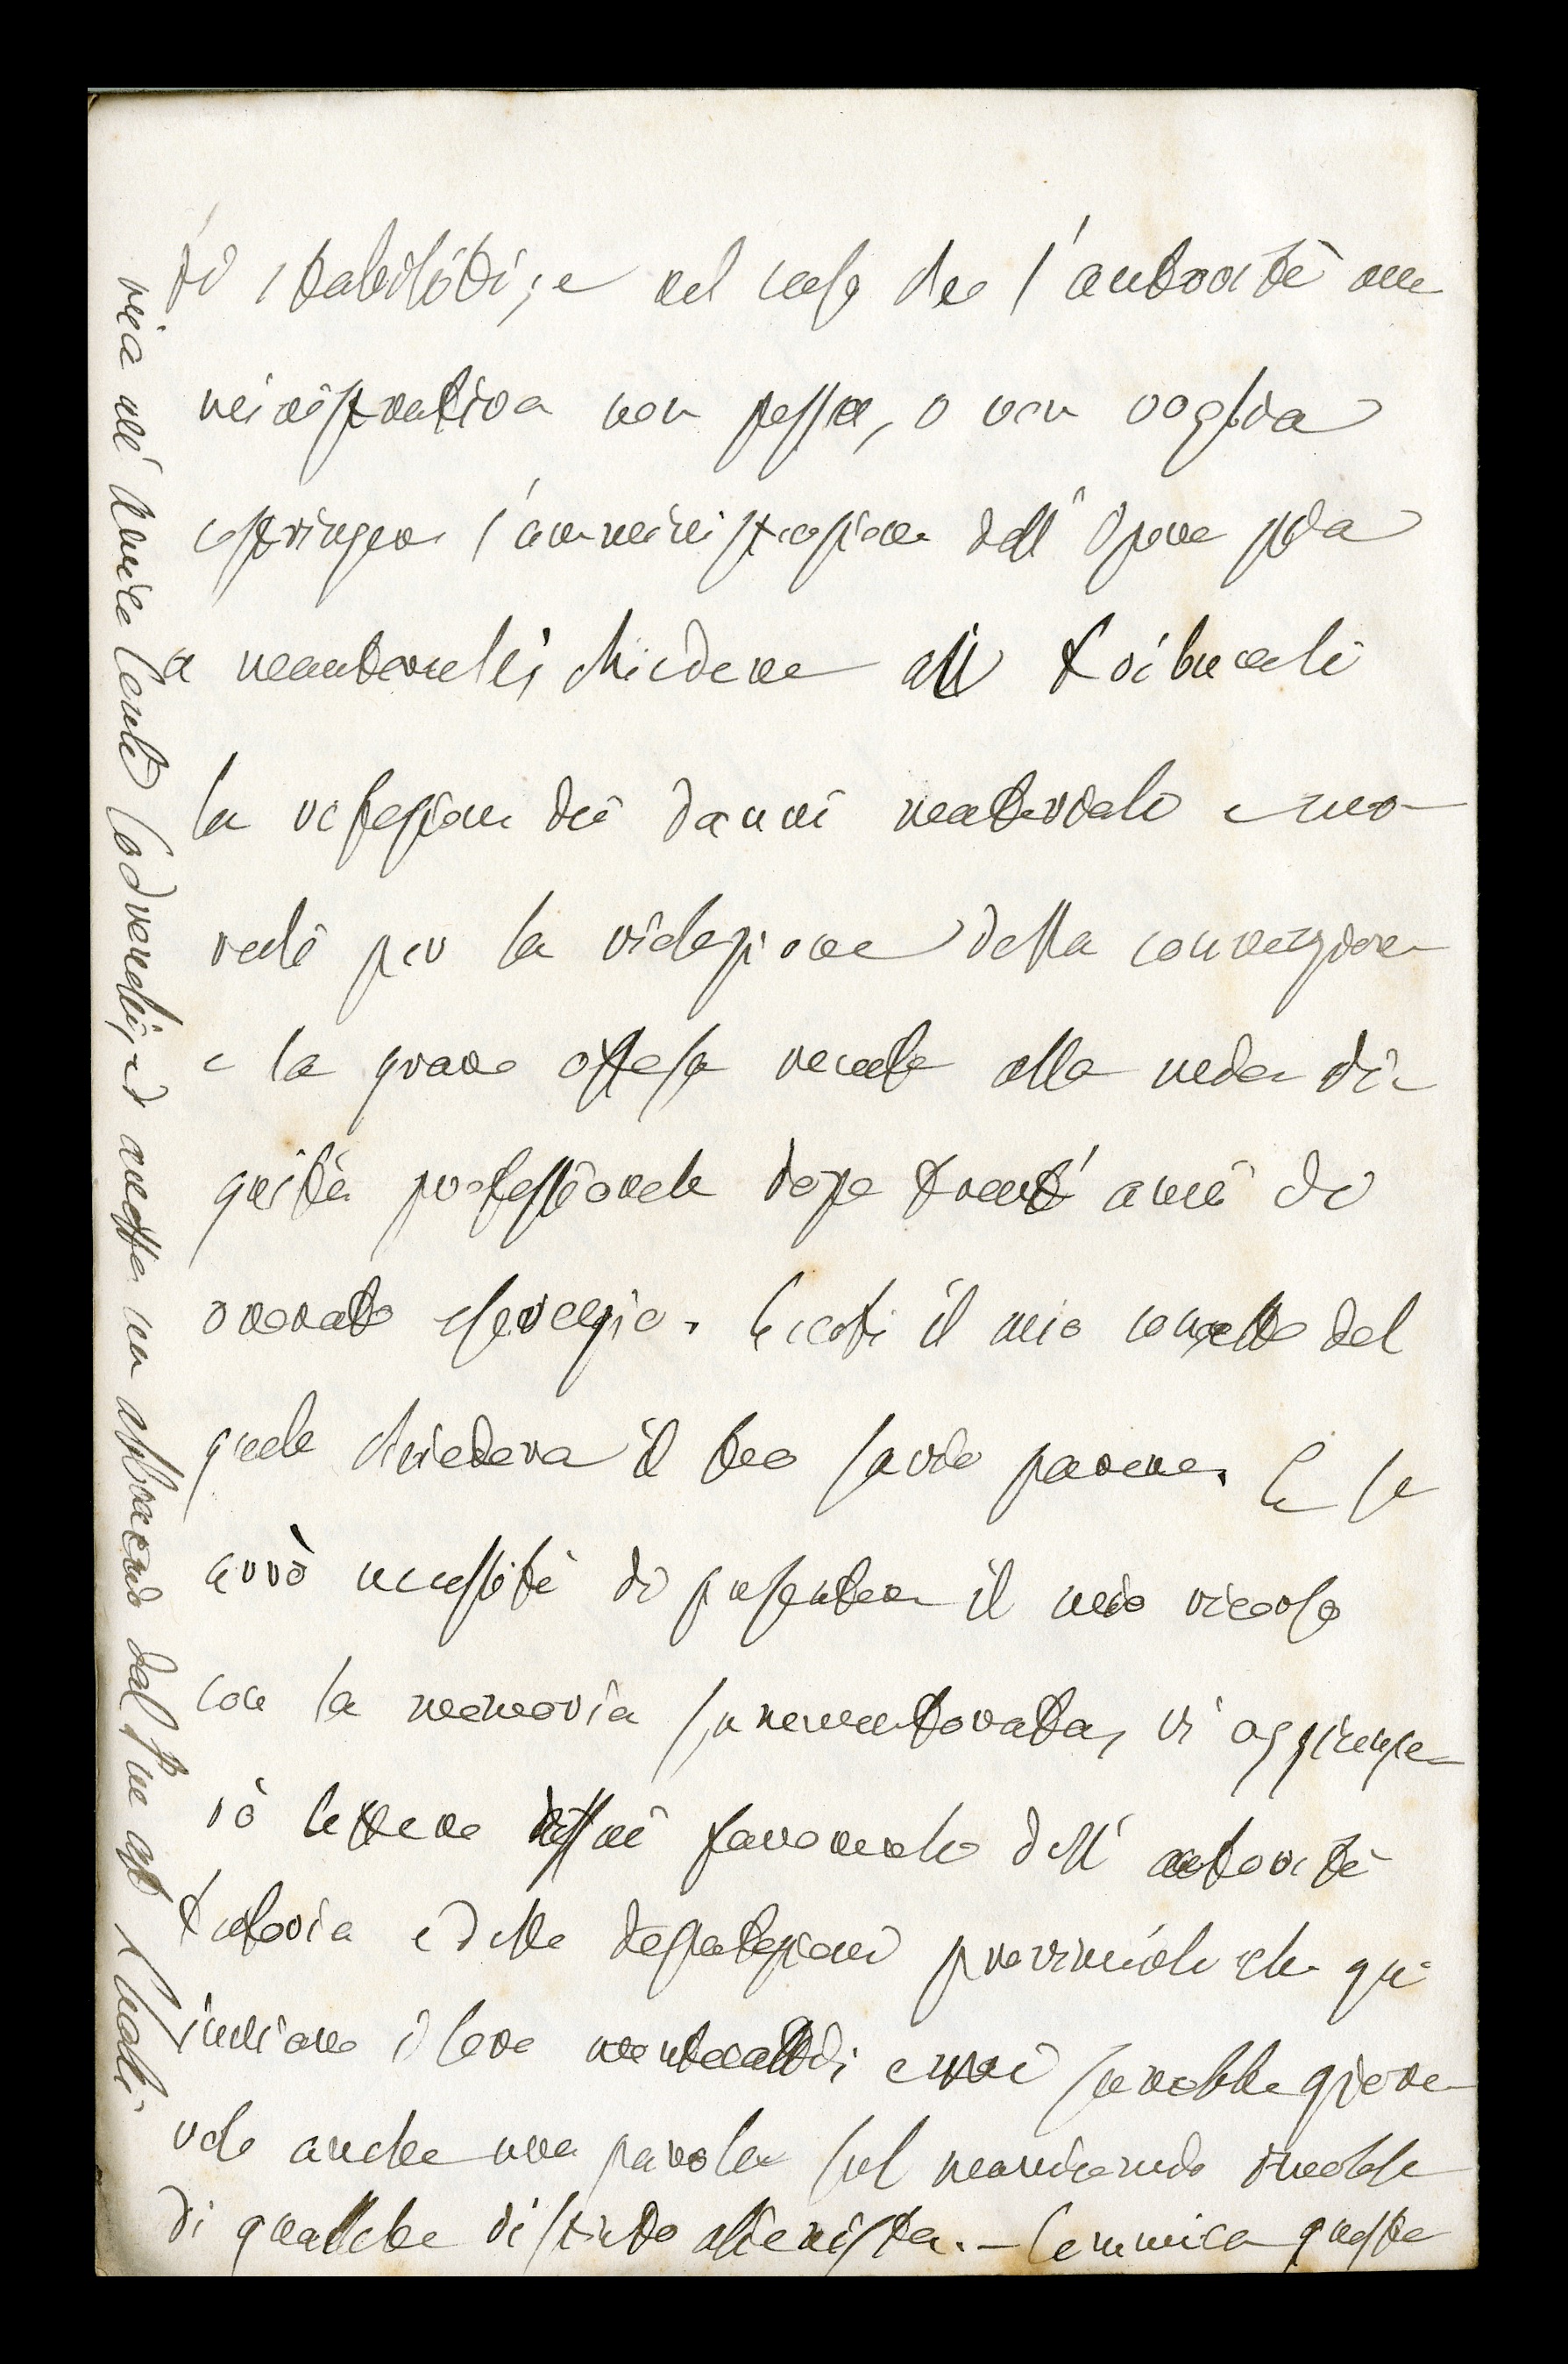 ti stabiliti; e nel caso che l'autorità am
ministrativa non possa, o non voglia
costringere l'amministrazione dell'Opera pia
a mantenerli, chiedere ai tribunali
la rifazione dei danni materiali e mo-
rali per la violazione della convenzione
e la grave offesa recata alla meda di-
gnità professionale dopo trent'anni di
onorato esercizio. Eccoti il mio concetto del
quale chiedeva il tuo savio parere. E se
avrò necessità di presentare il mio ricorso
con la memoria summentovata, vi aggiunge
rò lettere favorevoli dell'autorità
tutoria e delle deputazioni provinciali che qui
inviano i loro mentecatti; e mi sarebbe giove
vole anche una parola sul manicomio
di qualche distinto alienista. - Comunica questa
mia all'amico Conte Codronchi, ed accetta un abbraccio dal tuo aff